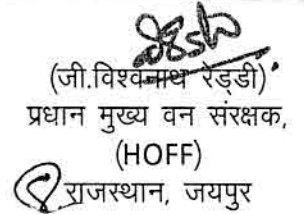 (जी.विश्वनाथ रेड्डी)
प्रधान मुख्य वन संरक्षक,
(HOFF)
राजस्थान, जयपुर